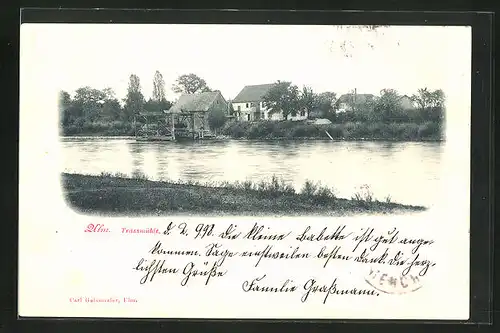 Ulm. Traxxmühle. d. 2. 9 98. Die kleine Babette ist gut ange-
kommen. Sage einstweilen besten Dank. die herz-
lichsten Grüße
Familie Graßmann.
Carl Ulm.